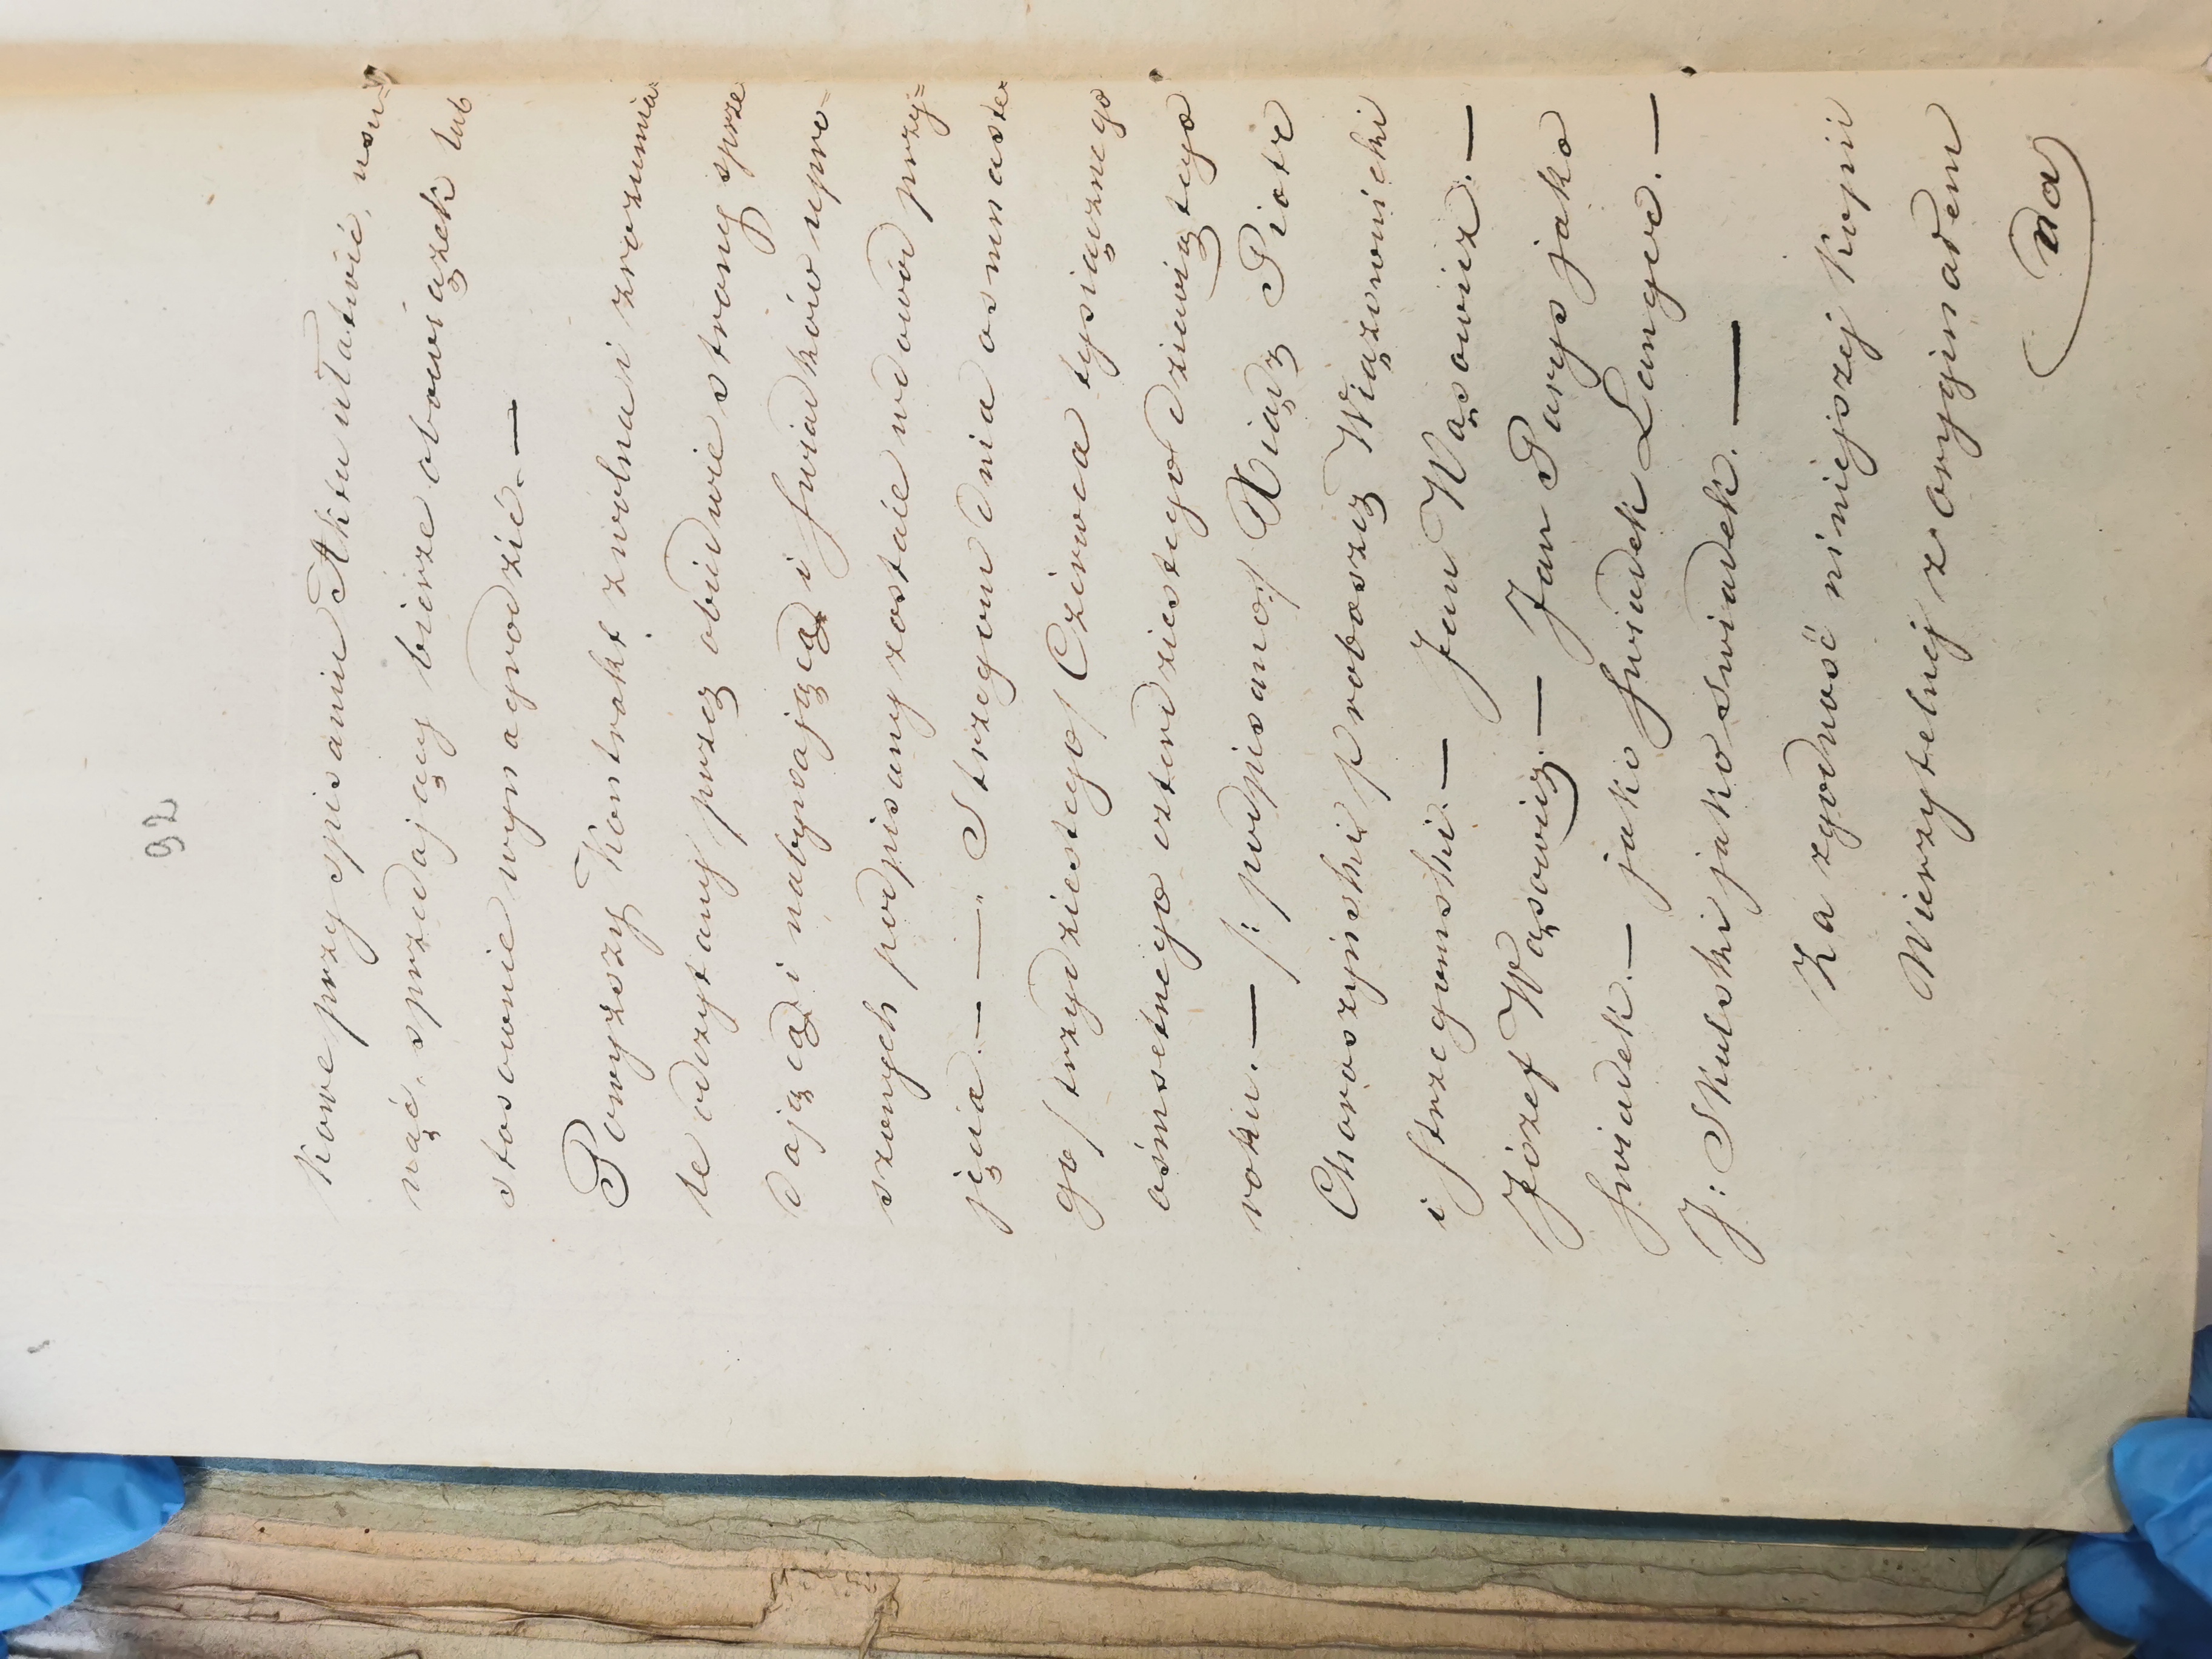 92
kowe przy spisaniu Aktu ułatwić, usu-
nąć, sprzedający bierze obowiązek lub
stosownie wynagrodzić. —
Powyższy Kontrakt zwolna i zrozumia-
le odczytany przez obiedwie strony sprze
dającą i nabywającą i świadków upro-
szonych podpisany zostaie na dowód przy=
jęcia. — — Strzegom dnia osmnaste-
go/trzydziestego/ Czerwca tysiącznego
ośmsetnego czterdziestego dziewiątego
roku. — /: podpisano:/ Xiądz Piotr
Choroszyński proboszcz Wiązownicki
i strzegomski. — Jan Wąsowicz. —
Józef Wąsowicz. — Jan Parys jako
świadek. — jako świadek Langer. —
J: Skulski jako świadek. —
Za zgodność niniejszej kopii
Wierzytelnej z oryginałem
na